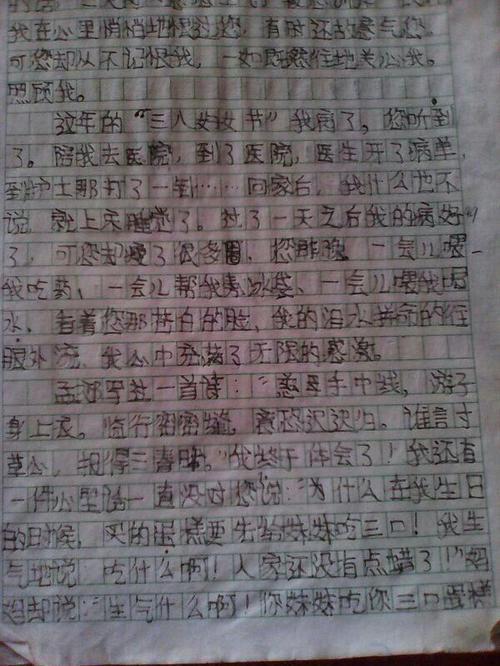 我在心里悄悄地恨过您，有时还故意气您，
可您却从不记恨我，一如既然往地关心我。
照顾我。
这年的“三八妇女节”我病了。您听到
了。陪我去医院，到了医院，医生开了病单，
到护士那打了一针……回家后，我什么也不
说，就上床睡觉了。过了一天之后我的病好
了，可您却瘦了很多圈，您那晚，一会儿喂
我吃药、一会儿帮我敷冰袋、一会儿喂我喝
水，看着您那苍白的脸，我的泪水拼命的往
眼外流，我心中充满了无限的感激。
孟郊写过一首诗：“慈母手中线，游子
身上衣。临行密密缝，意恐迟迟归。谁言寸
草心，报得三春晖。”我终于体会了！我还有
一件心里话一直没对您说：“为什么在我生日
的日时候，买的蛋糕要先给妹妹吃三口！我生
气地说：吃什么啊！人家还没有点蜡了！”妈
妈却说：“生气什么啊！你妹妹吃你三口蛋糕